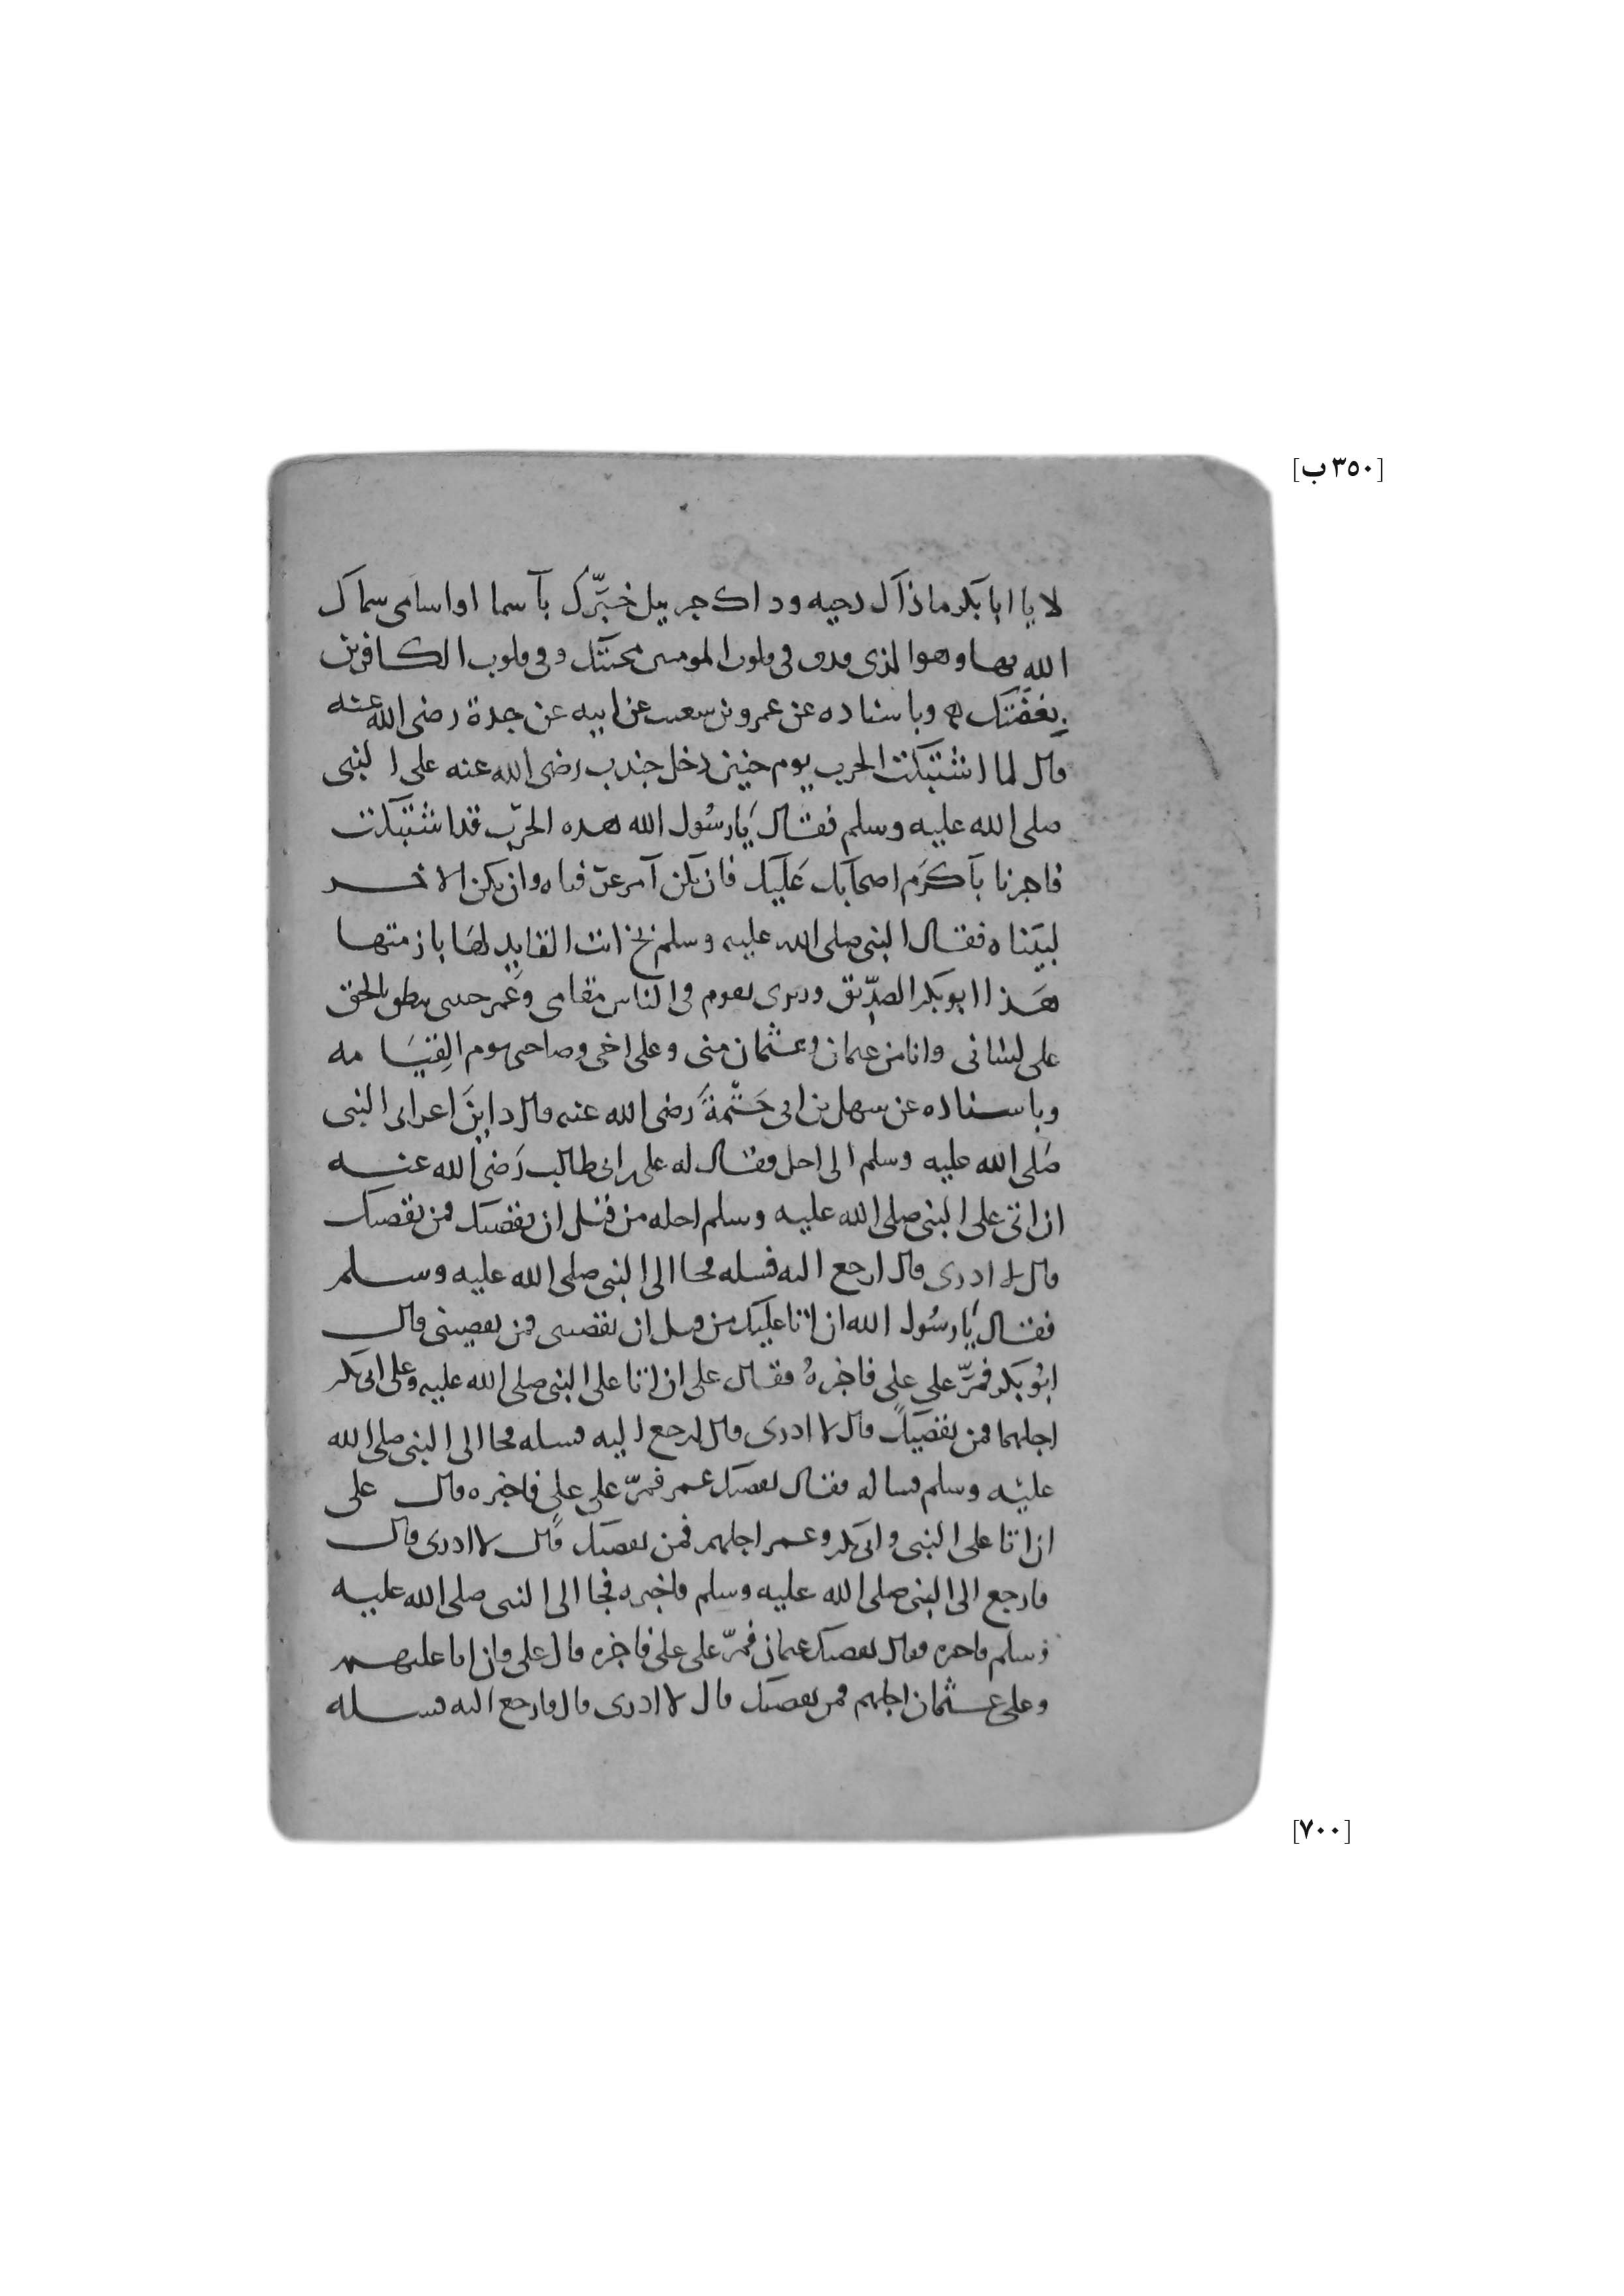 [٣٥٠ ب]
لا يا ابا بكر ما ذاك دحيه وذاك جبريل خبّرك بأسما او اسامى سماك
الله بها وهو الذى قدف فى قلوب المومنين محبتك وفى قلوب الكافرين
بغضتك وباسناده عن عمرو بن سعيب عن ابيه عن جده رضى الله عنه
قال لما اشتبكت الحرب يوم حنين دخل جندب رضى الله عنه على النبى
صلى الله عليه وسلم فقال يا رسُول الله هده الحرب قد اشتبكت
فاخبرنا بأكرم اصحابك عليك فان يكن أمر عرفناه وان يكن الاخر
لبيناه فقال النبى صلى الله عليه وسلم بخ انت القايد لها بازمتها
هذا ابو بكر الصدّيق وزيرى يقوم فى الناس مقامى وعُمر حبيبى ينطق بالحق
على لسانى وانا من عثمان وعثمان منى وعلى اخى وصاحبى يوم القيامه
وباسناده عن سهل بن ابى حَثمةَ رضى الله عنه قال داين اعرابى النبى
صَلى الله عليه وسلم الى اجل فقال له على بن ابى طالب رَضى الله عنه
ان اتى على النبى صلى الله عليه وسلم اجله من قبل ان يقضيك فمن يقضيك
قال لا ادرى قال ارجع اليه فسله فجا الى النبى صلى الله عليه وسلم
فقال يا رسُول الله ان اتا عليك من قبل ان تقضينى فمن يقضينى قال
ابُو بكر فمرّ على على فاخبرهُ فقال على ان اتا على النبى صلى الله عليه وعلى ابى بكر
اجلهما فمن يقضيك قال لا ادرى قال ارجع اليه فسله فجا الى النبى صلى الله
عليْه وسلم فساله فقال يقضيك عمر فمرّ على على فاخبره قال على
ان اتا على النبى وابى بكر وعمر اجلهم فمن يقضيك قال لا ادرى قال
فارجع الى النبى صلى الله عليه وسلم فاخبره فجا الى النبى صلى الله عليه
وسلم فاخبره فقال يقضيك عثمان فمرّ على على فاخبره قال على فان اتا عليهم
وعلى عثمان اجلهم فمن يقضيك قال لا ادرى قال فارجع اليه فسله
[٧٠٠]